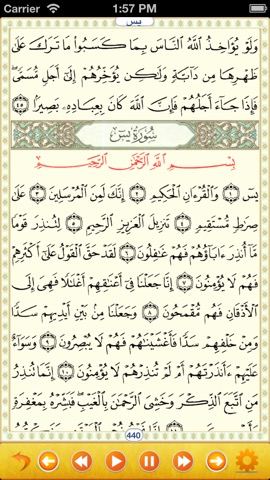 Carrier 1:57 PM
يس
وَلَوْ يُؤَاخِذُ ٱللَّهُ ٱلنَّاسَ بِمَا كَسَبُوا۟ مَا تَرَكَ عَلَىٰ
ظَهْرِهَا مِن دَآبَّةٍ وَلَٰكِن يُؤَخِّرُهُمْ إِلَىٰٓ أَجَلٍ مُّسَمًّى
فَإِذَا جَآءَ أَجَلُهُمْ فَإِنَّ ٱللَّهَ كَانَ بِعِبَادِهِۦ بَصِيرًۢا ٤٥
سُورَةُ يسٓ
بِسْمِ ٱللَّهِ ٱلرَّحْمَٰنِ ٱلرَّحِيمِ
يسٓ ١ وَٱلْقُرْءَانِ ٱلْحَكِيمِ ٢ إِنَّكَ لَمِنَ ٱلْمُرْسَلِينَ ٣ عَلَىٰ
صِرَٰطٍ مُّسْتَقِيمٍ ٤ تَنزِيلَ ٱلْعَزِيزِ ٱلرَّحِيمِ ٥ لِتُنذِرَ قَوْمًا
مَّآ أُنذِرَ ءَابَآؤُهُمْ فَهُمْ غَٰفِلُونَ ٦ لَقَدْ حَقَّ ٱلْقَوْلُ عَلَىٰٓ أَكْثَرِهِمْ
فَهُمْ لَا يُؤْمِنُونَ ٧ إِنَّا جَعَلْنَا فِىٓ أَعْنَٰقِهِمْ أَغْلَٰلًا فَهِىَ إِلَى
ٱلْأَذْقَانِ فَهُم مُّقْمَحُونَ ٨ وَجَعَلْنَا مِنۢ بَيْنِ أَيْدِيهِمْ سَدًّا
وَمِنْ خَلْفِهِمْ سَدًّا فَأَغْشَيْنَٰهُمْ فَهُمْ لَا يُبْصِرُونَ ٩ وَسَوَآءٌ
عَلَيْهِمْ ءَأَنذَرْتَهُمْ أَمْ لَمْ تُنذِرْهُمْ لَا يُؤْمِنُونَ ١٠ إِنَّمَا تُنذِرُ
مَنِ ٱتَّبَعَ ٱلذِّكْرَ وَخَشِىَ ٱلرَّحْمَٰنَ بِٱلْغَيْبِ فَبَشِّرْهُ بِمَغْفِرَةٍ
440